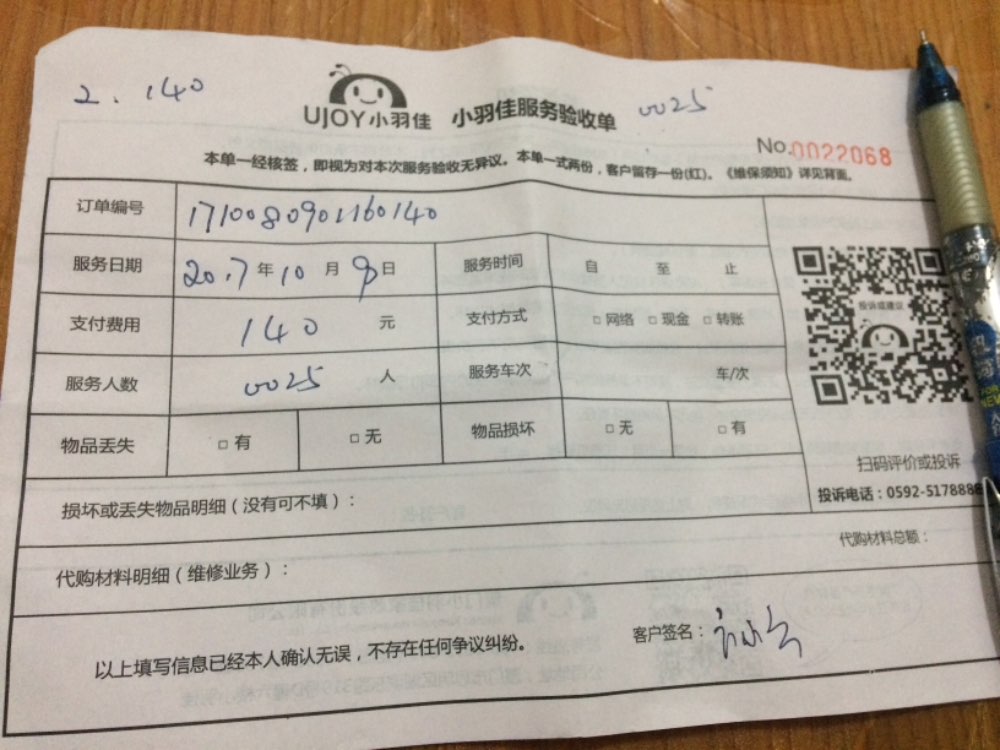 2. 140
UJOY小羽佳 小羽佳服务验收单 0025
No.0022068
本单一经核签，即视为对本次服务验收无异议。本单一式两份，客户留存一份(红)。《维保须知》详见背面。
订单编号 1710080901160140
服务日期 2017年10月9日 服务时间 自 至 止
支付费用 140 元 支付方式 □网络 □现金 □转账
服务人数 0025 人 服务车次 车/次
物品丢失 □有 □无 物品损坏 □无 □有
投诉或建议
扫码评价或投诉
投诉电话：0592-5178888
损坏或丢失物品明细（没有可不填）：
代购材料总额：
代购材料明细（维修业务）：
客户签名：
以上填写信息已经本人确认无误，不存在任何争议纠纷。